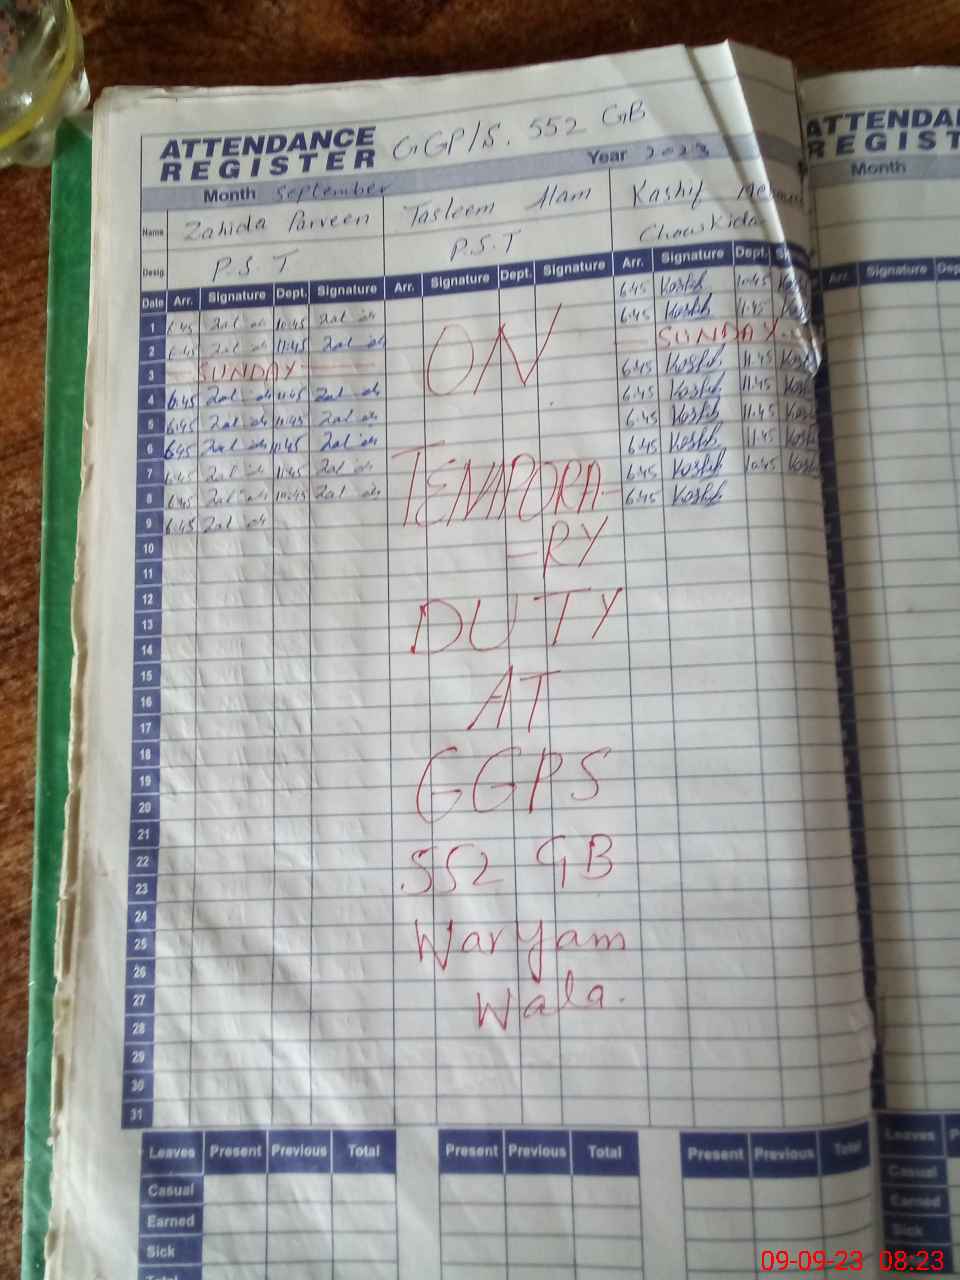 ATTENDANCE REGISTER GGP/S. 552 GB
Month September Year 2023
Name Zahida Parveen Tasleem Alam Kashif
Desig. P.S.T P.S.T Chowkidar
Date Arr. Signature Dept. Signature Arr. Signature Dept. Signature Arr. Signature Dept.
1 6:45 10:45 6:45 Kashif 10:45
2 6:45 11:45 6:45 Kashif 11:45
3 SUNDAY SUNDAY
4 6:45 11:45 6:45 Kashif 11:45
5 6:45 11:45 6:45 Kashif 11:45
6 6:45 11:45 6:45 Kashif 11:45
7 6:45 11:45 6:45 Kashif 11:45
8 6:45 10:45 6:45 Kashif 10:45
9 6:45 6:45 Kashif
10
11
12
13
14
15
16
17
18
19
20
21
22
23
24
25
26
27
28
29
30
31
ON
TEMPORA-
-RY
DUTY
AT
GGPS
552 GB
Waryam
Wala.
Leaves Present Previous Total Present Previous Total Present Previous Total
Casual
Earned
Sick
Total
ATTENDA
REGIST
Month
Arr. Signature Dep
Leaves
Casual
Earned
Sick
09-09-23 08:23